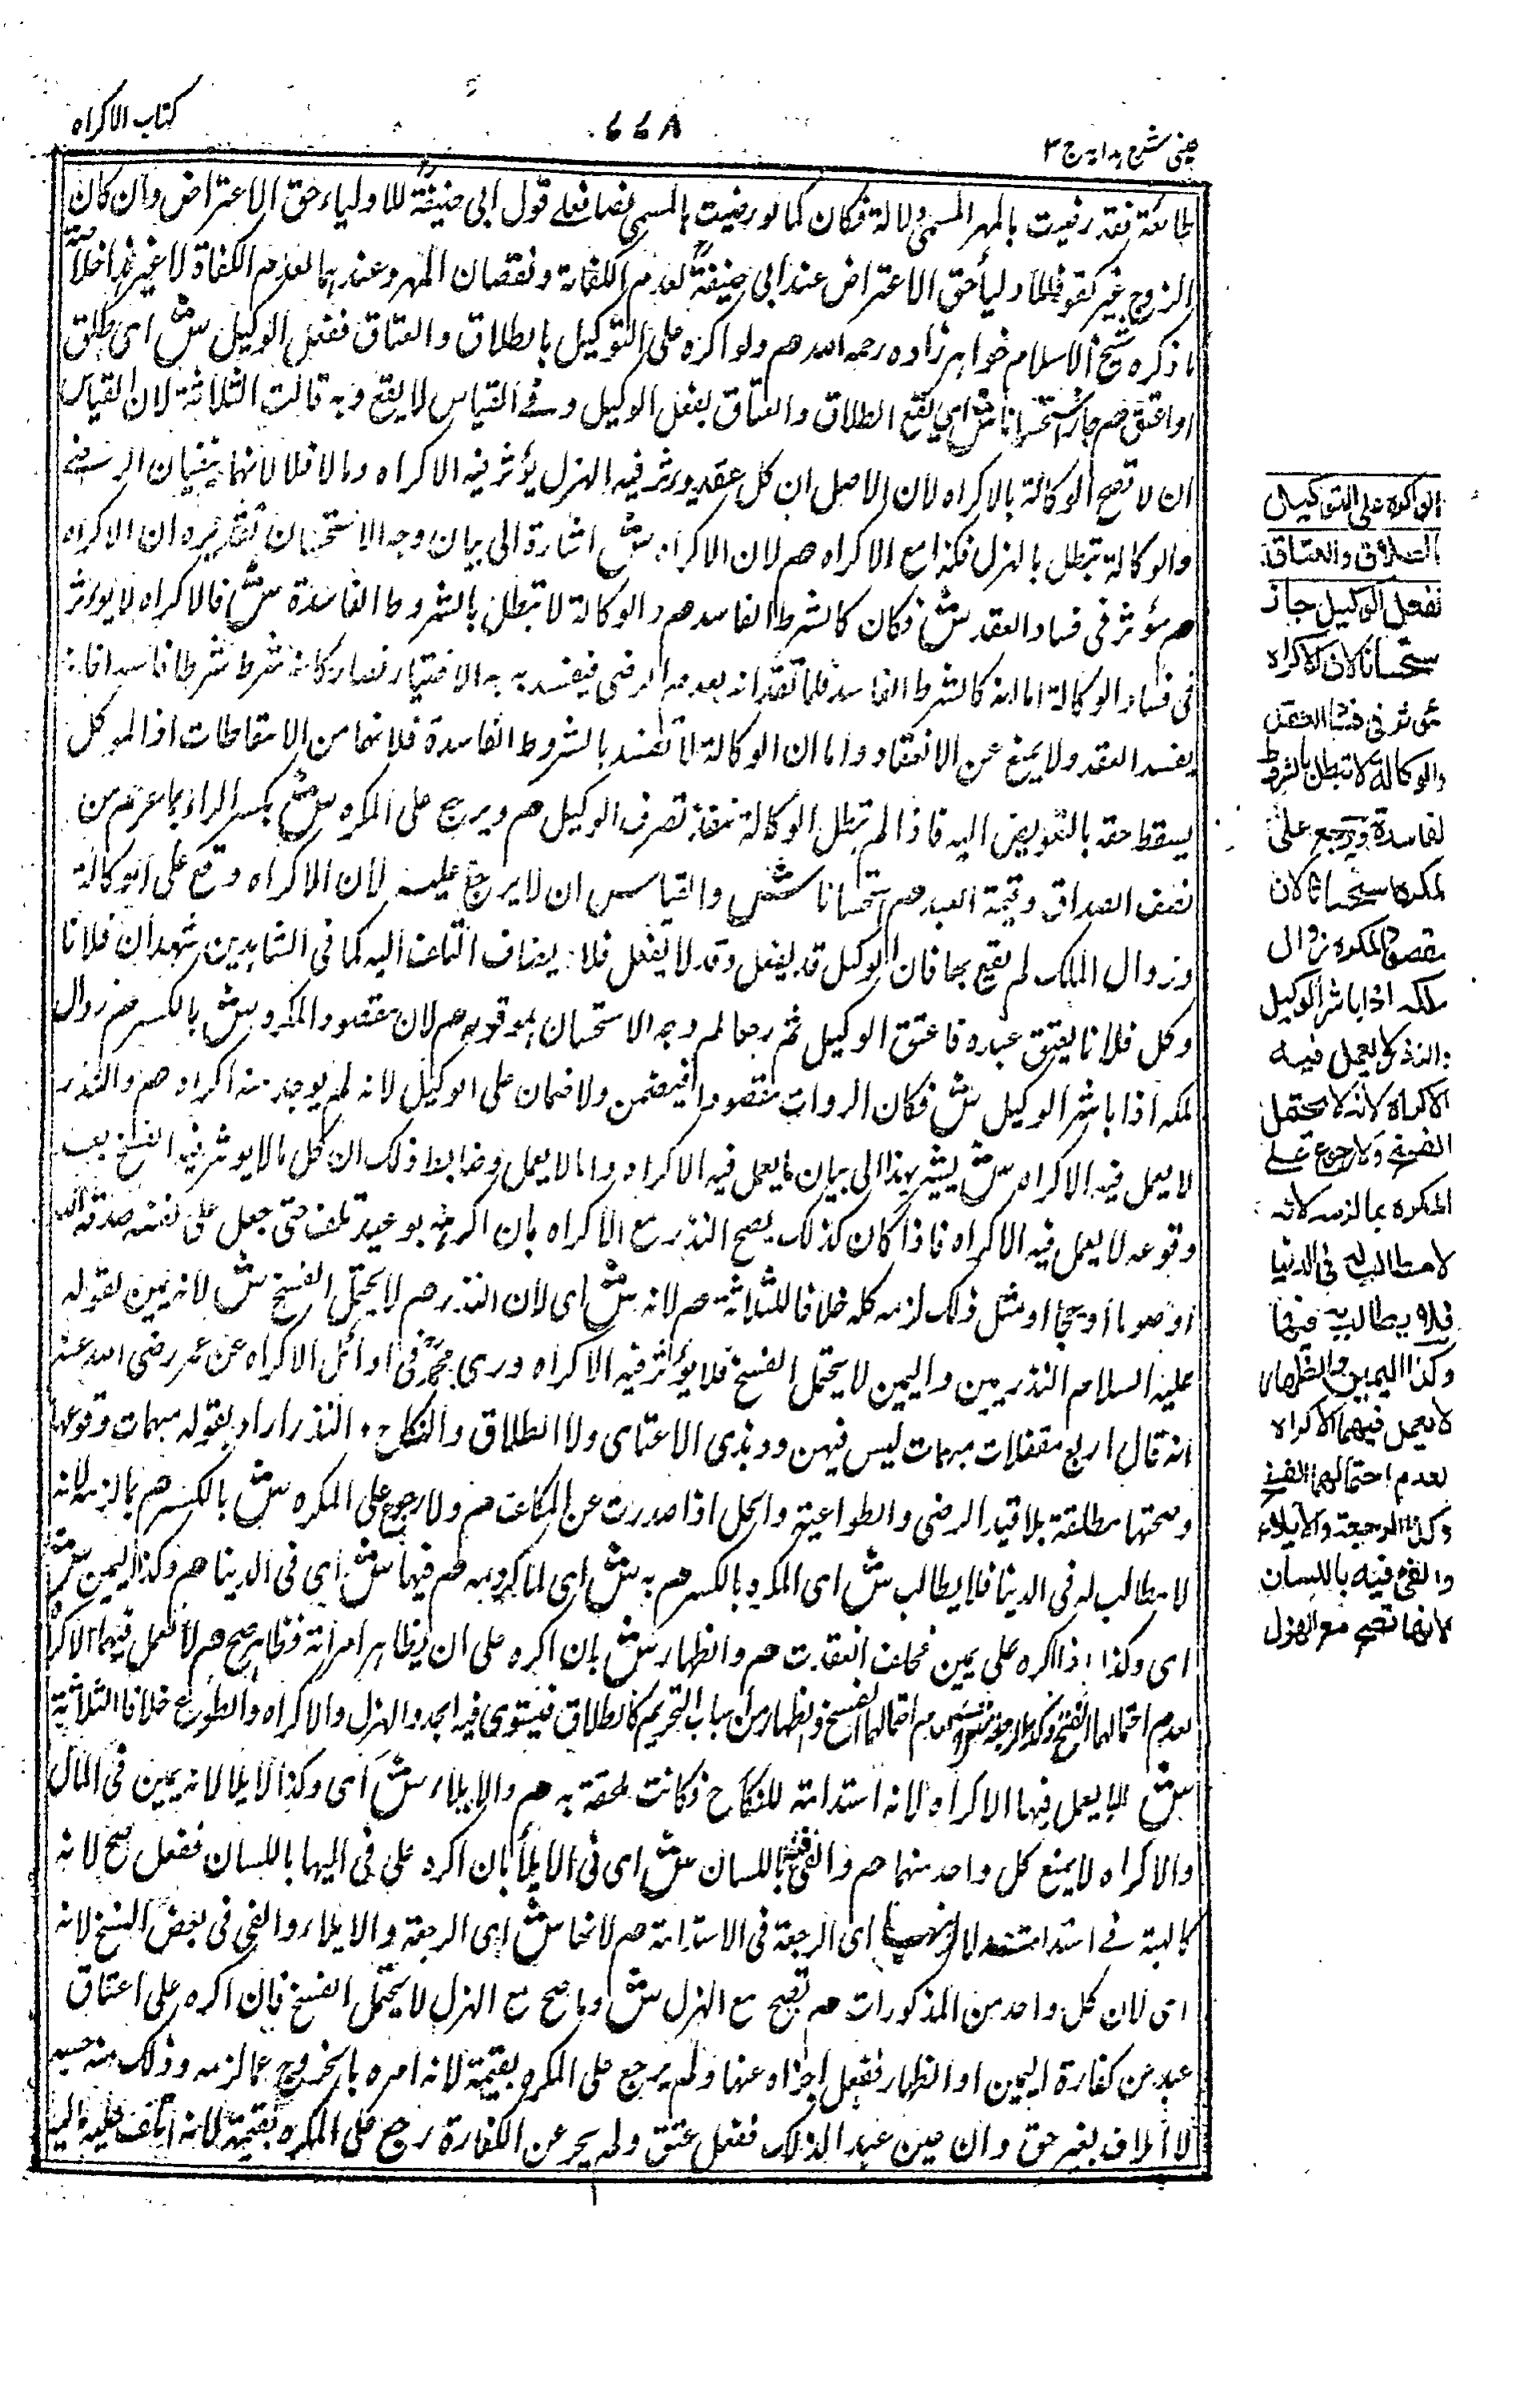 عینی شرح ہدایہ ج ۳
۷۷۸
کتاب الاکراہ
طائعة فقد رضیت بالمهر المسمی دلالة فکان کما لو رضیت بالمسمی نصا فعلے قول ابی حنیفةؒ للاولیاء حق الاعتراض وان کان
الزوج غیر کفو فللاولیاء حق الاعتراض عند ابی حنیفةؒ لعدم الکفاءة ونقصان المهر وعندہما لعدم الکفاءة لا غیر ہذا خلاصة
ما ذکرہ شیخ الاسلام خواہر زادہ رحمه الله هم ولو اکرہ علی التوکیل بالطلاق والعتاق ففعل الوکیل ش ای طلق
او اعتق هم جاز استحسانا ش ای یقع الطلاق والعتاق بفعل الوکیل وفے القیاس لا یقع وبه قالت الثلاثة لان القیاس
ان لا تصح الوکالة بالاکراہ لان الاصل ان کل عقد یؤثر فیه الهزل یؤثر فیه الاکراہ وما لا فلا لانهما ینفیان الرضی
والوکالة تبطل بالهزل فکذا مع الاکراہ هم لان الاکراہ ش اشارة الی بیان وجه الاستحسان تقریرہ ان الاکراہ
هم مؤثر فی فساد العقد ش فکان کالشرط الفاسد هم والوکالة لا تبطل بالشروط الفاسدة ش فالاکراہ لا یؤثر
فی فساد الوکالة اما انه کالشرط الفاسد فلما تقدم انه یعدم الرضی فیفسد به الاختیار فصار کانه شرط شرطا فاسدا فانه
یفسد العقد ولا یمنع عن الانعقاد واما ان الوکالة لا تفسد بالشروط الفاسدة فلانها من الاسقاطات اذ الموکل
یسقط حقه بالتفویض الیه فاذا لم تبطل الوکالة نفذ تصرف الوکیل هم ویرجع علی المکرہ ش بکسر الراء بما غرم من
نصف الصداق وقیمة العبد هم استحسانا ش والقیاس ان لا یرجع علیه لان الاکراہ وقع علی الوکالة
وزوال الملک لم یقع بها فان الوکیل قد یفعل وقد لا یفعل فلا یضاف التلف الیه کما فی الشاہدین شہدا ان فلانا
وکل فلانا بعتق عبدہ فاعتق الوکیل ثم رجعا لم وجه الاستحسان بقوله هم لان مقصود المکرہ ش بالکسر هم زوال
ملکه اذا باشر الوکیل ش فکان الزوال مقصودا فیضمن ولا ضمان علی الوکیل لانه لم یوجد منه اکراہ هم والنذر
لا یعمل فیه الاکراہ ش یشیر بهذا الی بیان ما یعمل فیه الاکراہ وما لا یعمل وضابط ذلک ان کل ما لا یؤثر فیه الفسخ بعد
وقوعه لا یعمل فیه الاکراہ فاذا کان کذلک یصح النذر مع الاکراہ بان اکرہ بوعید تلف حتی جعل علی نفسه صدقة لله
او صوما او حجا او مثل ذلک لزمه کله خلافا للثلاثة هم لانه ش ای لان النذر هم لا یحتمل الفسخ ش لانه یمین لقوله
علیه السلام النذر یمین والیمین لا یحتمل الفسخ فلا یؤثر فیه الاکراہ وروی محمدؒ فی اوائل الاکراہ عن عمر رضی الله عنه
انه قال اربع مقفلات مبهمات لیس فیهن رد یدی الاعتاق ولا الطلاق والنکاح والنذر اراد بقوله مبهمات وقوعها
وصحتها مطلقة بلا قید الرضی والطواعیة والحل اذا صدرت عن المکلف هم ولا رجوع علی المکرہ ش بالکسر هم بما لزمه لانه
لا مطالب له فی الدنیا فلا یطالب ش ای المکرہ بالکسر هم به ش هم فیها ش ای فی الدنیا هم وکذا الیمین ش
ای وکذا اذا اکرہ علی یمین فحلف انعقدت هم والظهار ش بان اکرہ علی ان یظاهر امرأته فظاهر صح هم لا یعمل فیهما الاکراہ
لعدم احتمالهما الفسخ والظهار من اسباب التحریم کالطلاق فیستوی فیه الجد والهزل والاکراہ والطوع خلافا للثلاثة
ش لا یعمل فیها الاکراہ لانه استدامة للنکاح فکانت ملحقة به هم والایلاء ش ای وکذا الایلاء لانه یمین فی الحال
والاکراہ لا یمنع کل واحد منهما هم والفئ فیه باللسان ش ای فی الایلاء بان اکرہ علی فئ الیها باللسان ففعل صح لانه
ای الرجعة فی الاستدامة هم لانها ش ای الرجعة والایلاء والفئ فی بعض النسخ لانه
ای لان کل واحد من المذکورات هم تصح مع الهزل ش وما صح مع الهزل لا یحتمل الفسخ فان اکرہ علی اعتاق
عبد من کفارة الیمین او الظهار ففعل اجزاہ عنها ولم یرجع علی المکرہ بقیمة لانه امرہ بالخروج عما لزمه وذلک منه حسبة
لا اتلاف بغیر حق وان عین عبدا لذلک ففعل عتق ولم یجز عن الکفارة رجع علی المکرہ بقیمته لانه اتلف علیه
ولو اکرہ علی التوکیل
بالطلاق والعتاق
ففعل الوکیل جاز
استحسانا لان الاکراہ
مؤثر فی فساد العقد
والوکالة لا تبطل بالشروط
الفاسدة ویرجع علی
المکرہ استحسانا لان
مقصود المکرہ زوال
ملکه اذا باشر الوکیل
والنذر لا یعمل فیه
الاکراہ لانه لا یحتمل
الفسخ ولا رجوع علی
المکرہ بما لزمه لانه
لا مطالب له فی الدنیا
فلا یطالب به فیها
وکذا الیمین والظهار
لا یعمل فیهما الاکراہ
لعدم احتمالهما الفسخ
وکذا الرجعة والایلاء
والفئ فیه باللسان
لانها تصح مع الهزل